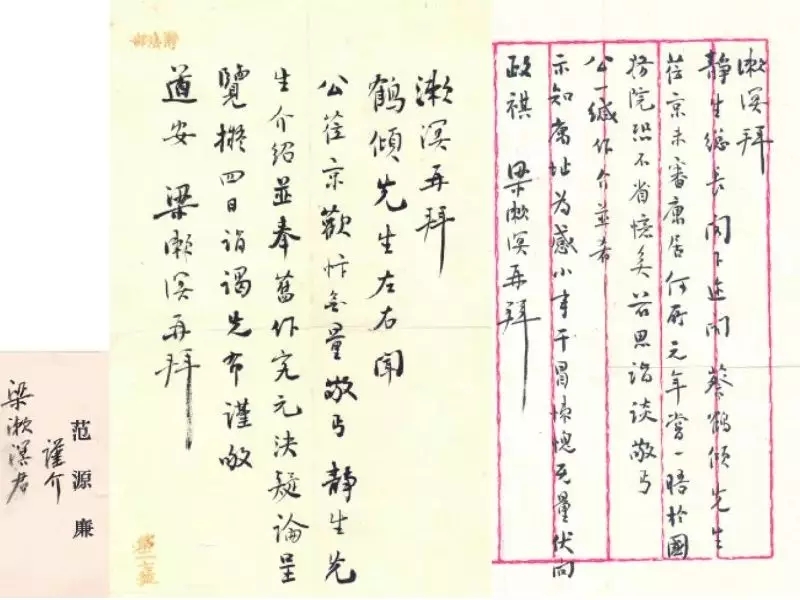 漱溟拜
靜生總長閣下途聞蔡鶴傾先生
莅京未審康居何所元年嘗一晤於國
務院恐不省憶矣茲思詣談敬丐
公一緘作介並希
示知寓址為感小事干冒悚愧无量伏向
政祺 梁漱溟再拜
漱溟再拜
鶴傾先生左右聞
公莅京歡忭無量敬丐靜生先
生介紹並奉舊作究元決疑論呈
覽擬四日詣謁先布謹敬
道安 梁漱溟再拜
范源廉
謹介
梁漱溟君